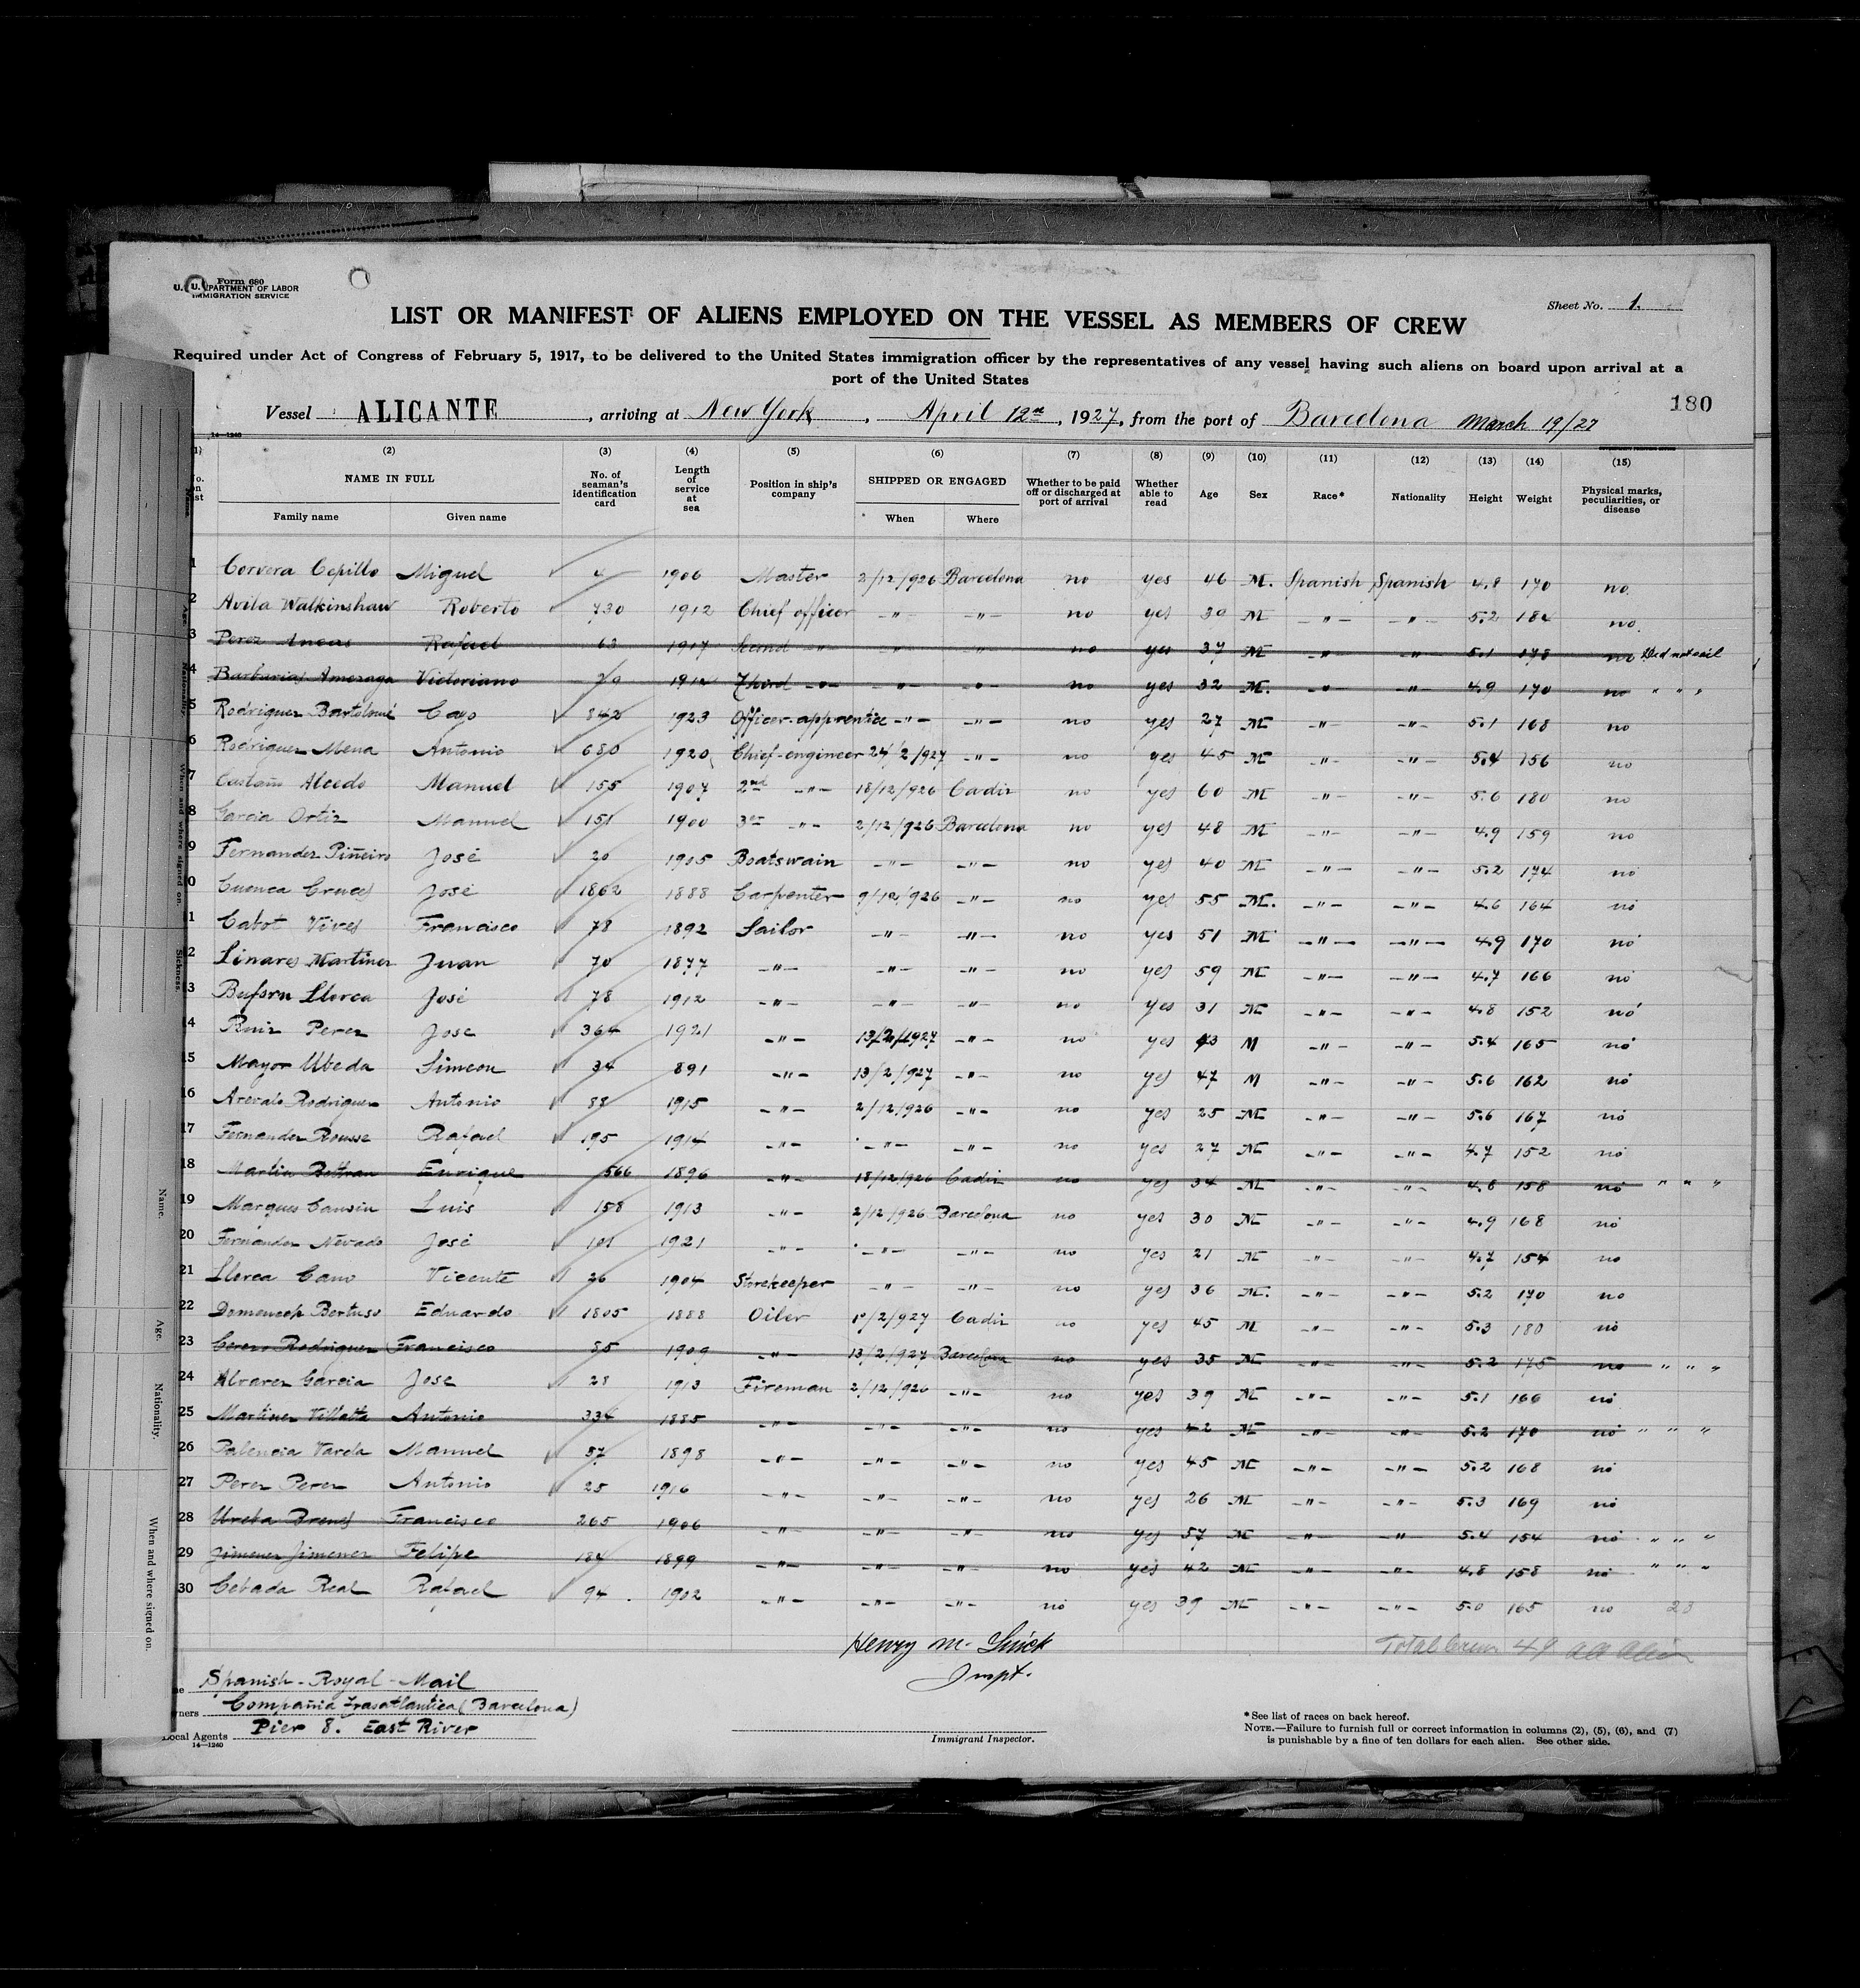 Form 680
U. S. DEPARTMENT OF LABOR
IMMIGRATION SERVICE
Sheet No. 1.
LIST OR MANIFEST OF ALIENS EMPLOYED ON THE VESSEL AS MEMBERS OF CREW
Required under Act of Congress of February 5, 1917, to be delivered to the United States immigration officer by the representatives of any vessel having such aliens on board upon arrival at a
port of the United States
180
Vessel ALICANTE, arriving at New York, April 12th, 1927, from the port of Barcelona March 19/27
14—1240
(1) (2) (3) (4) (5) (6) (7) (8) (9) (10) (11) (12) (13) (14) (15)
NAME IN FULL Family name Given name No. of seaman's identification card Length of service at sea Position in ship's company SHIPPED OR ENGAGED When Where Whether to be paid off or discharged at port of arrival Whether able to read Age Sex Race* Nationality Height Weight Physical marks, peculiarities, or disease
1 Corvera Cepillo Miguel 4 1906 Master 2/12/926 Barcelona no yes 46 M. Spanish Spanish 4.8 170 no
2 Avila Walkinshaw Roberto 730 1912 Chief officer -"- -"- no yes 39 M -"- -"- 5.2 184 no
3 Perez Rafael 63 1917 Second -"- -"- -"- no yes 37 M -"- -"- 5.1 178 no Did not sail
4 Barbarias Amezaga Victoriano 20 1912 Third -"- -"- -"- no yes 32 M. -"- -"- 4.9 170 no " " "
5 Rodriguez Bartolomé Cayo 842 1923 Officer-apprentice -"- -"- no yes 27 M -"- -"- 5.1 168 no
6 Rodriguez Mena Antonio 680 1920 Chief-engineer 24/2/927 -"- no yes 45 M -"- -"- 5.4 156 no
7 Castaño Alcedo Manuel 155 1907 2nd -"- 18/12/926 Cadiz no yes 60 M -"- -"- 5.6 180 no
8 Garcia Ortiz Manuel 151 1900 3er -"- 2/12/926 Barcelona no yes 48 M -"- -"- 4.9 159 no
9 Fernandez Piñeiro José 20 1905 Boatswain -"- -"- no yes 40 M -"- -"- 5.2 174 no
10 Cuenca Cruces José 1862 1888 Carpenter 9/12/926 -"- no yes 55 M. -"- -"- 4.6 164 no
11 Cabot Vives Francisco 78 1892 Sailor -"- -"- no yes 51 M -"- -"- 4.9 170 no
12 Linares Martinez Juan 70 1877 -"- -"- -"- no yes 59 M -"- -"- 4.7 166 no
13 Buforn Llorca José 78 1912 -"- -"- -"- no yes 31 M -"- -"- 4.8 152 no
14 Ruiz Perez Jose 364 1921 -"- 13/2/1927 -"- no yes 43 M -"- -"- 5.4 165 no
15 Mayor Ubeda Simeon 34 891 -"- 13/2/927 -"- no yes 47 M -"- -"- 5.6 162 no
16 Arevalo Rodriguez Antonio 88 1915 -"- 2/12/926 -"- no yes 25 M -"- -"- 5.6 167 no
17 Fernandez Rousse Rafael 195 1914 -"- -"- -"- no yes 27 M -"- -"- 4.7 152 no
18 Martin Beltran Enrique 566 1896 -"- 18/12/926 Cadiz no yes 34 M -"- -"- 4.8 158 no " " "
19 Marques Cansin Luis 158 1913 -"- 2/12/926 Barcelona no yes 30 M -"- -"- 4.9 168 no
20 Fernandez Nevado José 101 1921 -"- -"- -"- no yes 21 M -"- -"- 4.7 154 no
21 Llorca Cano Vicente 26 1904 Storekeeper -"- -"- no yes 36 M. -"- -"- 5.2 170 no
22 Domenech Eduardo 1805 1888 Oiler 1º/2/927 Cadiz no yes 45 M -"- -"- 5.3 180 no
23 Cerezo Rodriguez Francisco 85 1909 -"- 13/2/927 Barcelona no yes 35 M -"- -"- 5.2 175 no " " "
24 Alvarez Garcia Jose 28 1913 Fireman 2/12/926 -"- no yes 39 M -"- -"- 5.1 166 no
25 Martinez Villalta Antonio 334 1885 -"- -"- -"- no yes 42 M -"- -"- 5.2 170 no " " "
26 Palencia Varela Manuel 37 1898 -"- -"- -"- no yes 45 M -"- -"- 5.2 168 no
27 Perez Perez Antonio 25 1916 -"- -"- -"- no yes 26 M -"- -"- 5.3 169 no
28 Ureba Brenes Francisco 265 1906 -"- -"- -"- no yes 57 M -"- -"- 5.4 154 no " " "
29 Jimenez Jimenez Felipe 184 1899 -"- -"- -"- no yes 42 M -"- -"- 4.8 158 no " " "
30 Cebada Real Rafael 94 1902 -"- -"- -"- no yes 39 M -"- -"- 5.0 165 no 23
Henry M. Total Crew 49 all alien
Inspt.
Spanish-Royal-Mail
Owners Compañia Trasatlantica (Barcelona)
Local Agents Pier 8. East River
14—1240
Immigrant Inspector.
*See list of races on back hereof.
NOTE.—Failure to furnish full or correct information in columns (2), (5), (6), and (7)
is punishable by a fine of ten dollars for each alien. See other side.
Name.
Age.
Nationality.
When and where signed on.
Sickness.
Name.
Age.
Nationality.
When and where signed on.